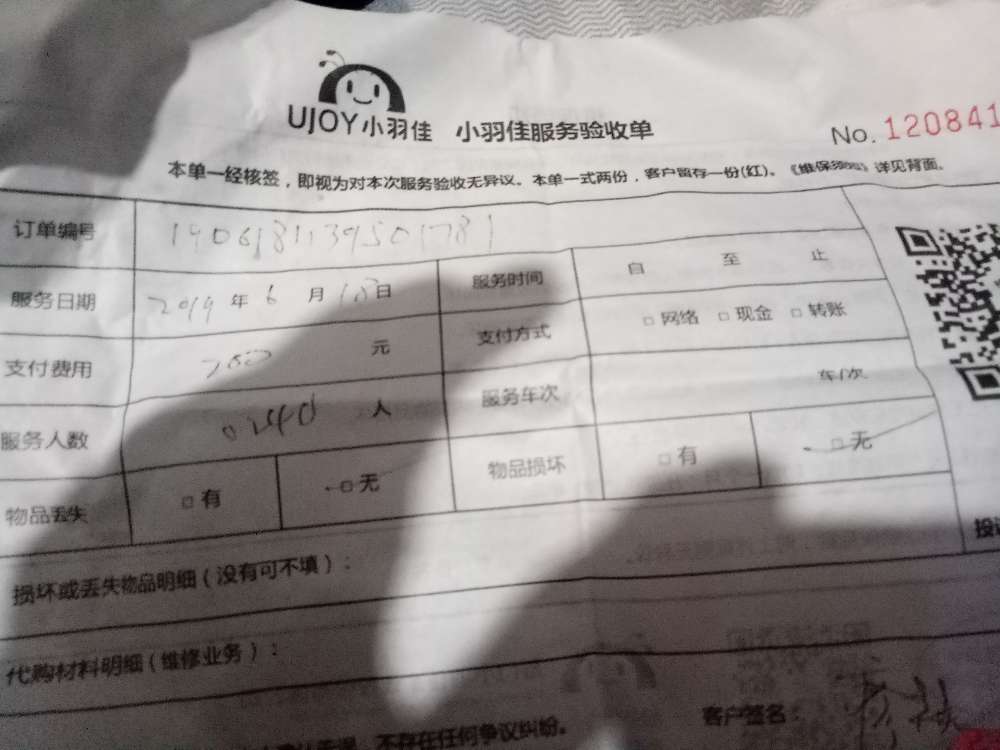 UJOY小羽佳 小羽佳服务验收单
No. 120841
本单一经核签，即视为对本次服务验收无异议。本单一式两份，客户留存一份(红)。《维保须知》详见背面。
订单编号
服务日期 2019 年 6 月 18 日 服务时间 自 至 止
支付费用 元 支付方式 □ 网络 □ 现金 □ 转账
服务人数 0240 人 服务车次 车/次
物品丢失 □ 有 □ 无 物品损坏 □ 有 □ 无
损坏或丢失物品明细（没有可不填）：
代购材料明细（维修业务）：
不存在任何争议纠纷。
客户签名：